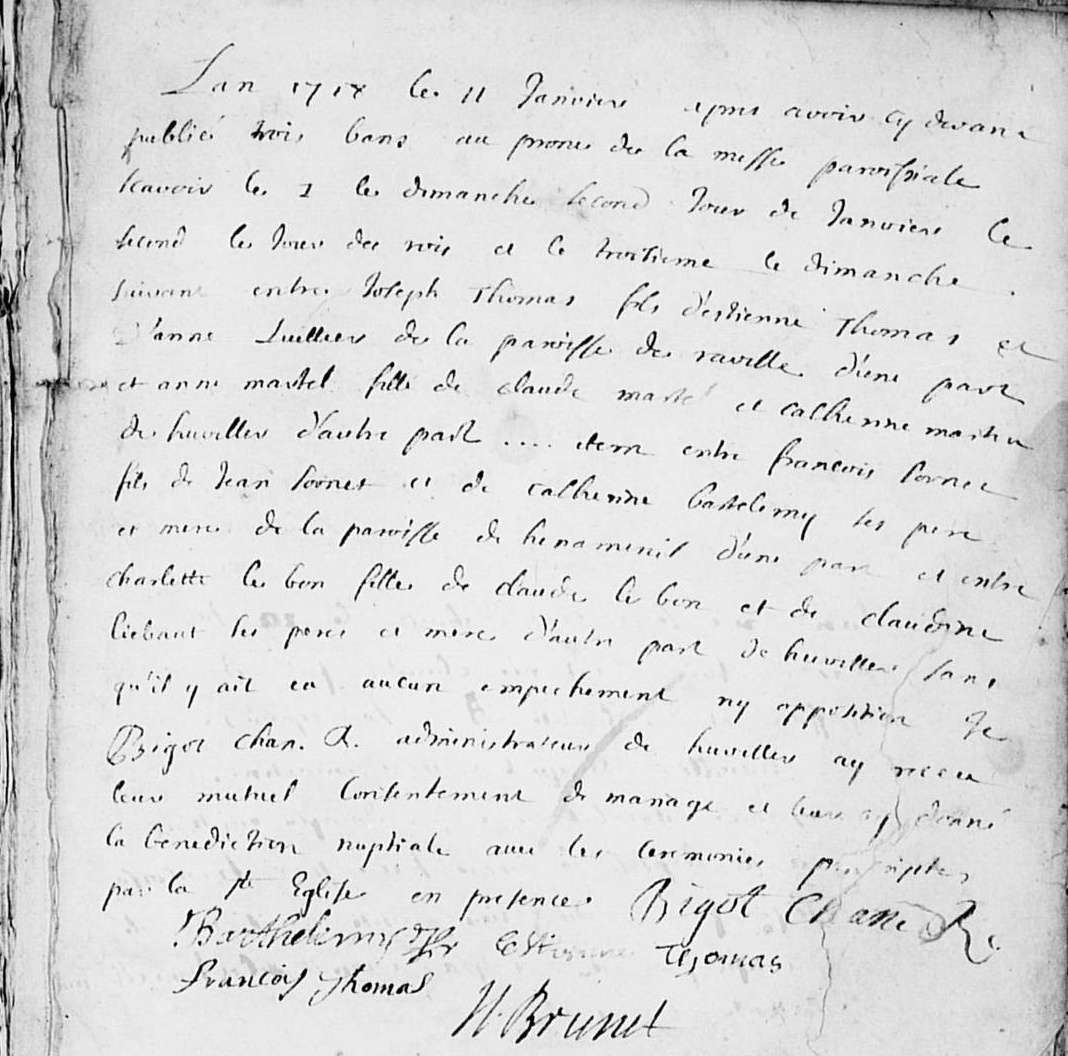 Lan 1718 le 11 Janvier apres avoir cy devant
publié trois bans au prone de la messe paroissiale
scavoir le 1 le dimanche second Jour de Janvier le
second le Jour des rois et le troisieme le dimanche
suivant entre Joseph Thomas fils d'estienne Thomas et
d'anne Luillier de la paroisse de raville d'une part
et anne martel fille de claude marte et catherinne
de huviller d'autre part .... item entre francois
fils de Jean et de catherinne bartelemy ses pere
et mere de la paroisse de henamenil d'une part et entre
charlotte le bon fille de claude le bon et de claudine
liebaut ses peres et mere d'autre part de huviller sans
qu'il y ait eu aucun empechement ny opposition Je
Bigot chan. R. administrateur de huviller ay receu
leur mutuel Consentement de mariage et leur ay donné
la benediction nuptiale avec les Ceremonies prescriptes
par la ste Eglise en presence Bigot Chan R.
Barthelemy Estienne Thomas
francois Thomas
N. Brunet